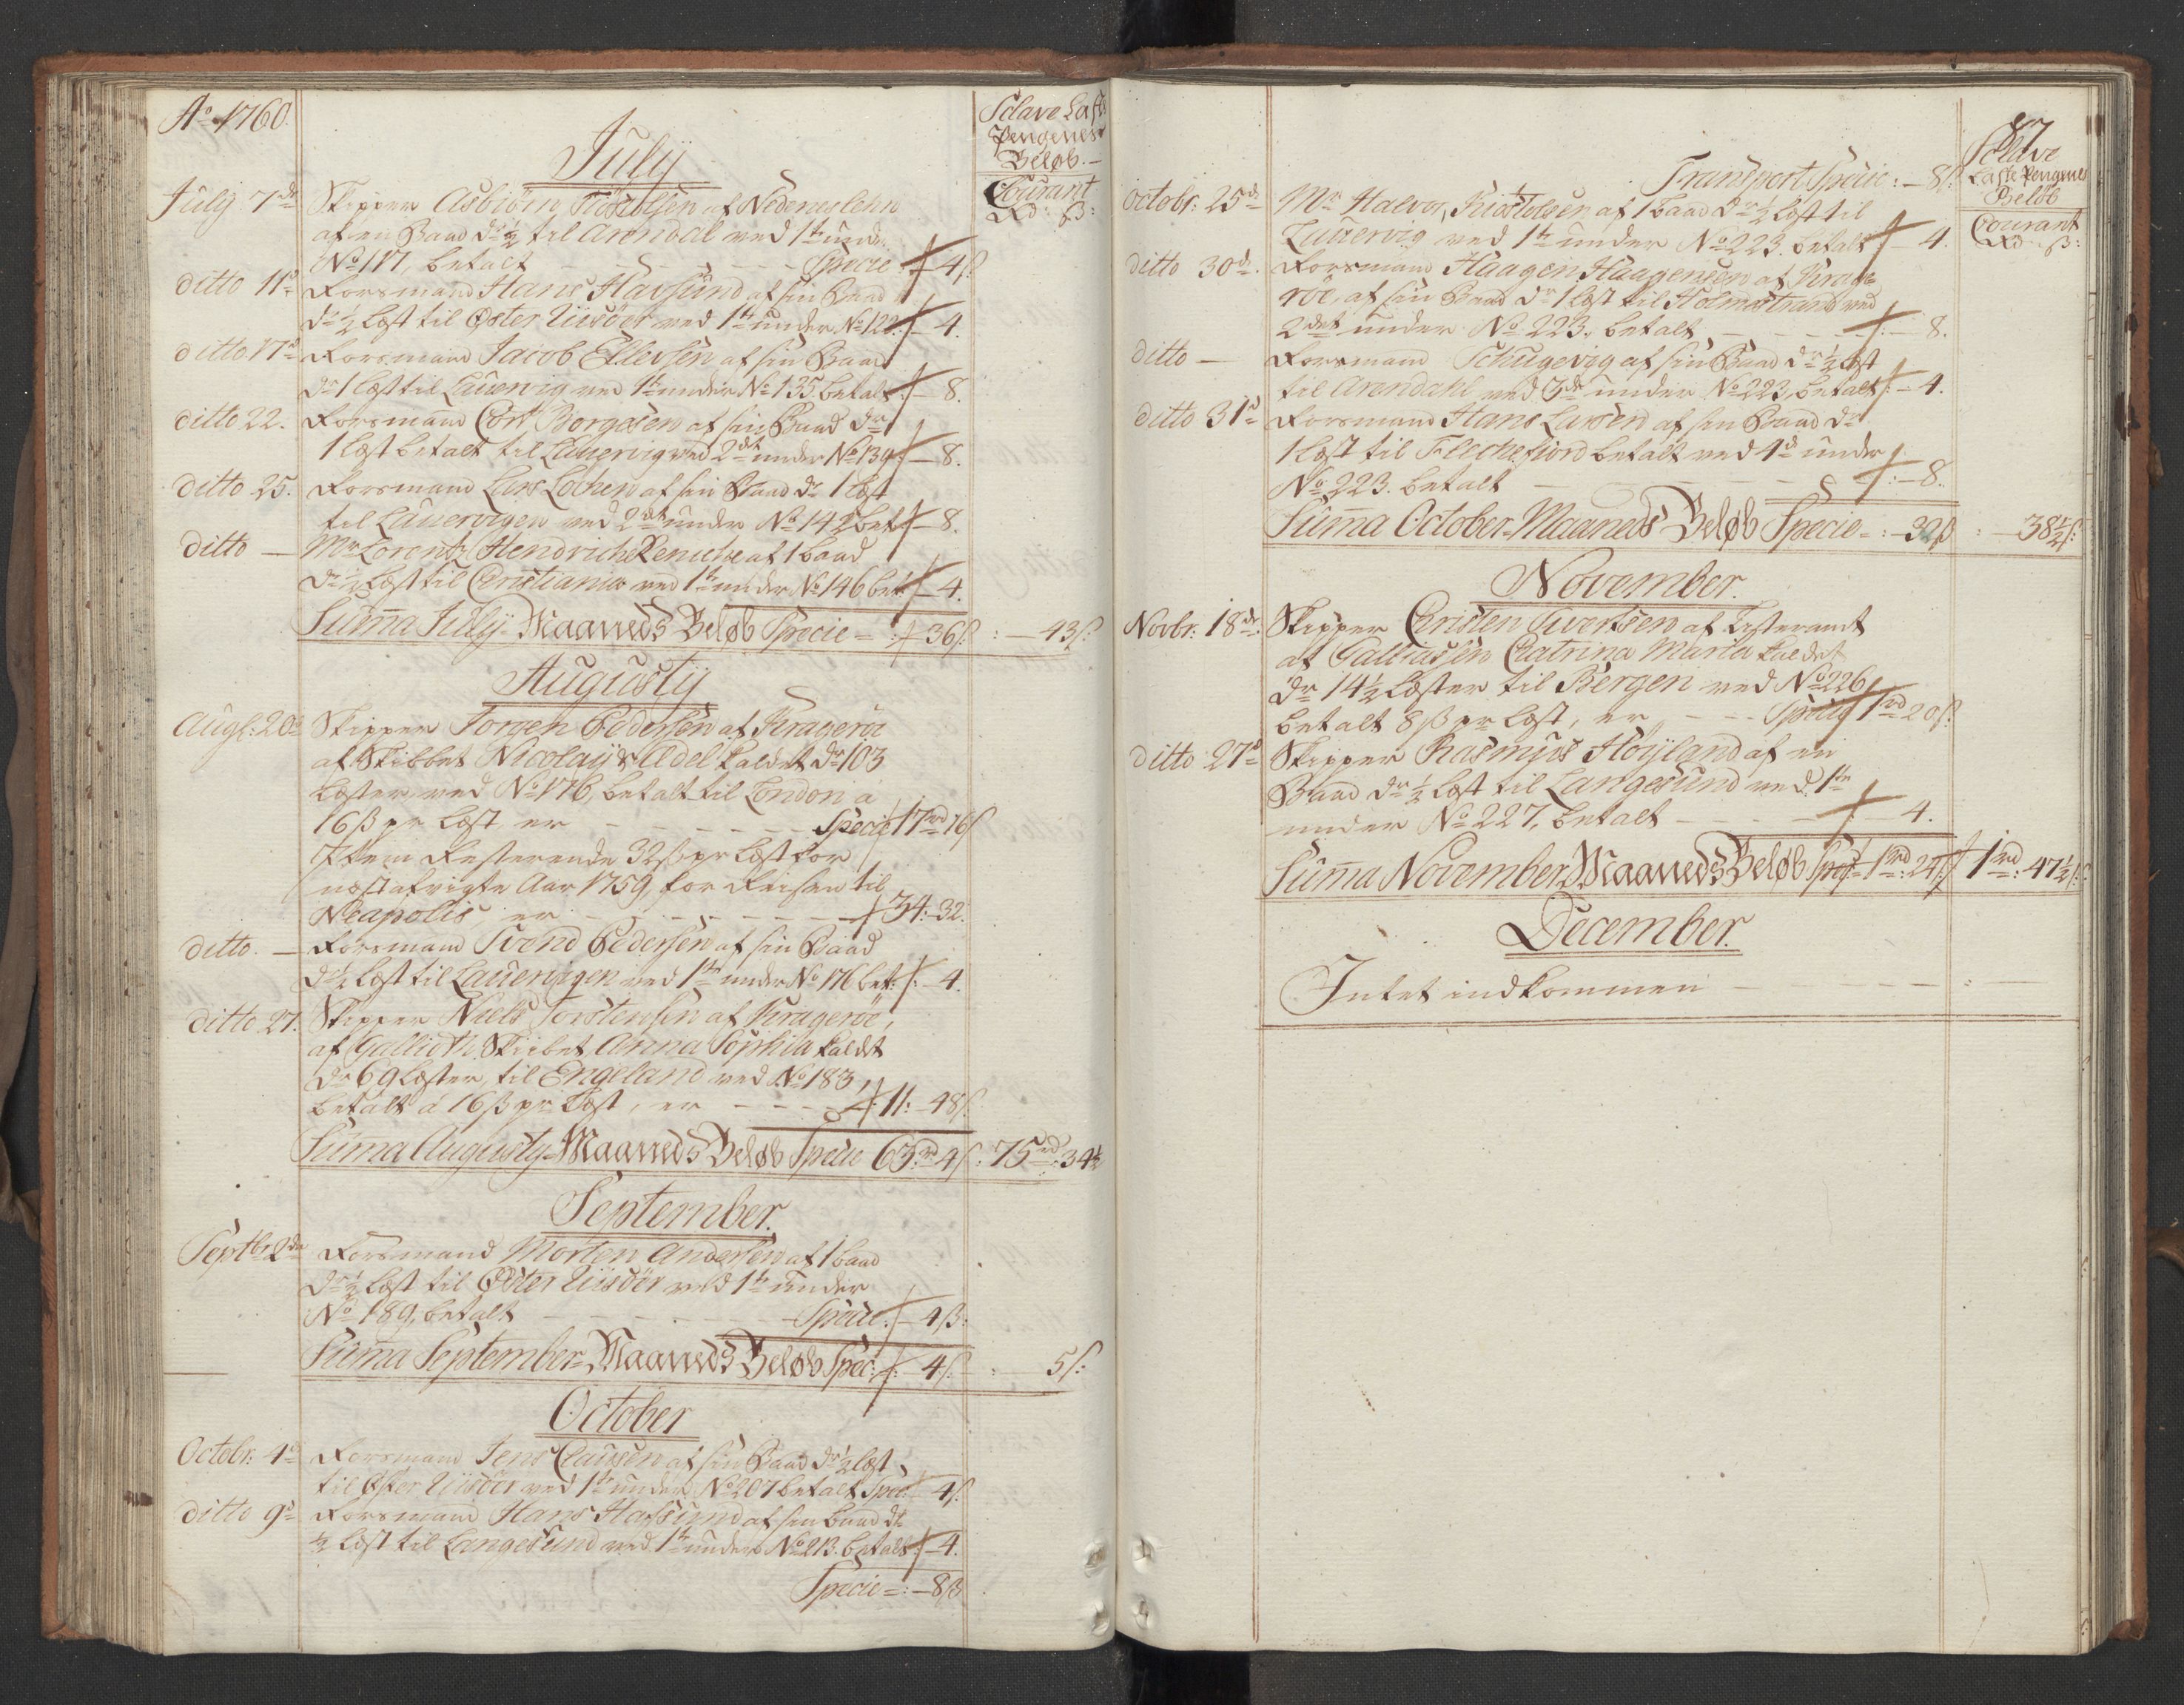 Ao 1760.
Sclave Laste
Pengenes
Beløb.
Courant
Rd: ß:
July
July 7de Skipper Asbiörn Toroldsen af Nedeneslehn
af en Baad dr ½ til Arendal ved 1te under
No 117, betalt - - - Specie - 4ß:
ditto 11te Forsmand Hans Havsund af sin Baad
dr ½ Læst til Øster Riisöer ved 1te under No 122: - 4.
ditto 17de Forsmand Jacob Ellevsen af sin Baad
dr 1 Læst til Lauervig ved 1te under No 135 betalt: - 8.
ditto 22. Forsmand Cort Borgesen af sin Baad dr
1 Læst betalt til Lauervig ved 2det under No 139: - 8.
ditto 25. Forsmand Lars Lochen af sin Baad dr 1 Læst
til Lauervigen ved 2det under No 142 bet: - 8.
ditto — Mr Lorentz Hendrich af 1 baad
dr ½ Læst til Christiania ved 1te under No 146 bet: - 4.
Suma July Maaneds Beløb Specie = : 36ß : — 43ß:
Augusty
Augs: 20de Skipper Jorgen Pedersen af Krageröe
af Skibbet Nicolaij & Edel kaldet dr 103
Læster, ved No 176, betalt til London a
16ß pr Læst er - - - Specie 17rd 16ß
Item Resterende 32ß pr Læst for
næst afvigte Aar 1759 for Reisen til
Neapolis er - - - 34: 32.
ditto. — Forsmand Svend Pedersen af sin Baad
dr ½ Læst til Lauervigen ved 1te under No 176 bet: - 4.
ditto 27. Skipper Niels Torstensen af Krageröe,
af Gallioth Skibet Anna Sophia kaldet
dr 69 Læster, til Engeland ved No 183
betalt á 16ß pr Læst, er - - - 11: 48ß.
Suma Augusty Maaneds Beløb Specie 63rd 4ß: 75rd: 34½
September.
Septbr 2den Forsmand Morten Andersen af 1 baad
dr ½ Læst til Øster Riisöer ved 1te under
No 189, betalt - - - Specie. - 4ß:
Suma September Maaneds Beløb Spec: : 4ß : 5ß:
October
Octobr: 4de Forsmand Jens Clausen af sin Baad dr ½ Læst
til Øster Riisöer ved 1te under No 207 betalt Spec: 4ß:
ditto 9de Forsmand Hans Hafsund af sin baad dr
½ Læst til Langesund ved 1te under No 213. betalt: - 4.
Specie =: — 8ß
87
Sclave
Laste Pengenes
Beløb
Courant
Rd: ß:
Transport Specie: — 8ß:
Octobr: 25de Mr Halvor af 1 baad dr ½ Læst til
Lauervig ved 1te under No 223. betalt - 4.
ditto 30de. Forsmand Haagen Haagensen af Krage-
röe, af sin Baad dr 1 Læst til Holmestrand ved
2det under No 223, betalt - - - : - 8.
ditto — Forsmand Schugevig af sin Baad dr ½ Læst
til Arendahl ved 3de under No 223, betalt: - 4.
ditto 31te Forsmand Hans Larsen af sin Baad dr
1 Læst til Flechefiord betalt ved 4de under
No 223. betalt - - - : - 8.
Suma October Maaneds Beløb Specie = : — 32ß : — 38½ß:
November.
Novbr: 18de: Skipper Cristen Sivertsen af Listeramt
af Galliassen Catrina Maria kaldet
dr 14½ Læster til Bergen ved No 226
betalt 8ß pr Læst, er - - - Specie 1rd 20ß:
ditto 27de Skipper Rasmus Höyland af en
Baad dr ½ Læst til Langesund ved 1te
under No 227, betalt - - - 4.
Suma November Maaneds Beløb Spec: 1rd: 24ß: 1rd: 47½ß:
December.
Intet indkommen — - - - : —